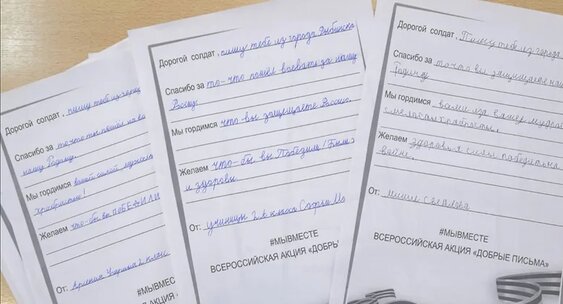 Дорогой солдат, пишу тебе из
Спасибо за то что ты пошёл на во
нашу Родину.
Мы гордимся вашей силой,
храбростью!
Желаем что-бы вы ПОБЕДИЛИ
От: 2 класс
#МЫВМЕСТЕ
ВСЕРОССИЙСКАЯ АКЦИЯ «ДОБРЫЕ П
Дорогой солдат, пишу тебе из города Рыбинска
Спасибо за то-что пошёл воевать за нашу
Россию.
Мы гордимся что-вы защищаете Россию.
Желаем что-бы вы Победили! Были
и здоровы
От: ученицы 2 класса
#МЫВМЕСТЕ
ВСЕРОССИЙСКАЯ АКЦИЯ «ДОБРЫ
Дорогой солдат, Пишу тебе из города
Спасибо за то что вы защищаете на
Родину
Мы гордимся вами за вашу
смелость храбрость.
Желаем здоровья силы победить на
войне.
От:
#МЫВМЕСТЕ
ВСЕРОССИЙСКАЯ АКЦИЯ «ДОБРЫЕ ПИСЬМА»